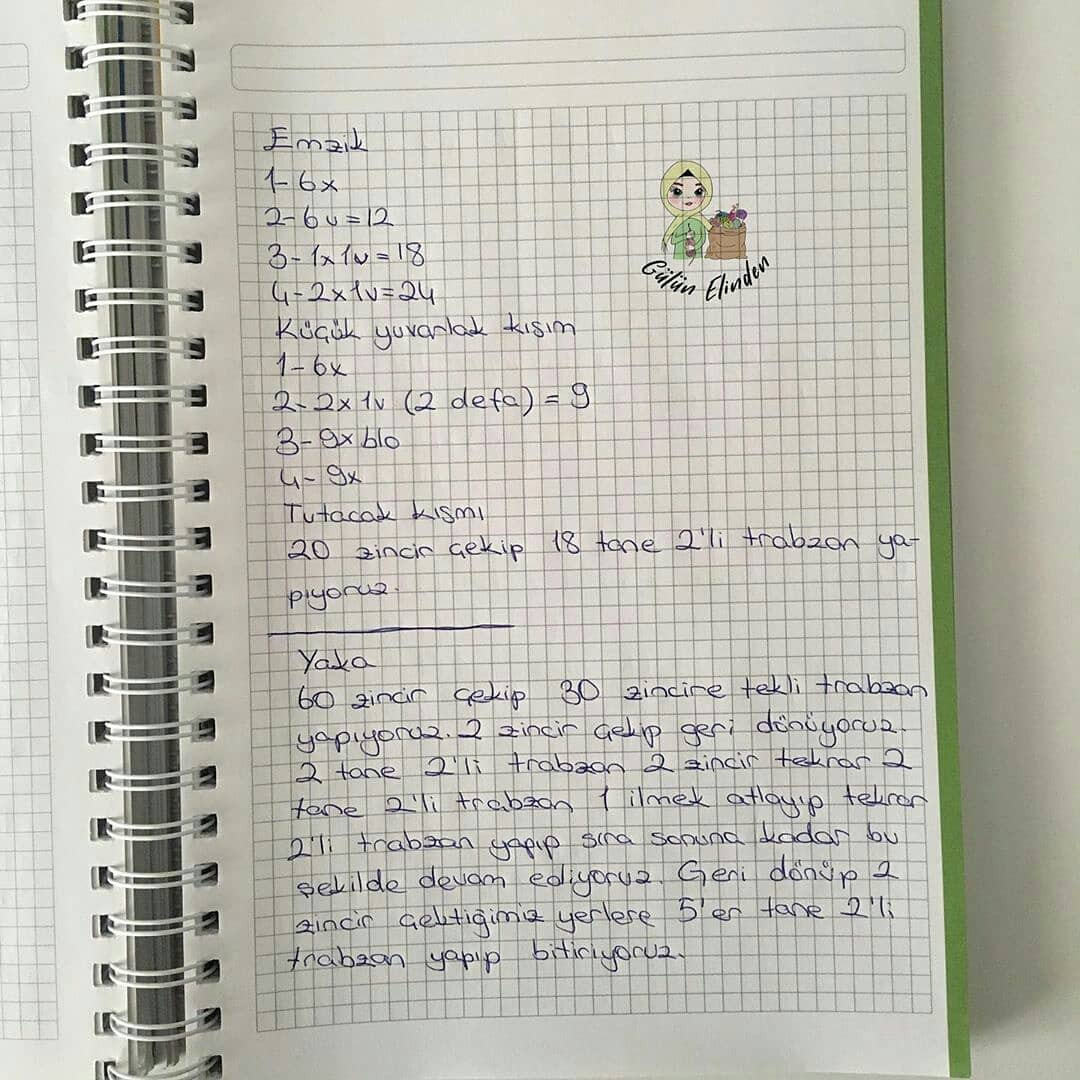 Emzik
1- 6x
2- 6v = 12
3- 1x 1v = 18
4- 2x 1v = 24
Gülün Elinden
Küçük yuvarlak kısım
1- 6x
2- 2x 1v (2 defa) = 9
3- 9x blo
4- 9x
Tutacak kısmı
20 zincir çekip 18 tane 2'li trabzan ya-
pıyoruz.
Yaka
60 zincir çekip 30 zincire tekli trabzan
yapıyoruz. 2 zincir çekip geri dönüyoruz.
2 tane 2'li trabzan 2 zincir tekrar 2
tane 2'li trabzan 1 ilmek atlayıp tekrar
2'li trabzan yapıp sıra sonuna kadar bu
şekilde devam ediyoruz. Geri dönüp 2
zincir çektiğimiz yerlere 5'er tane 2'li
trabzan yapıp bitiriyoruz.